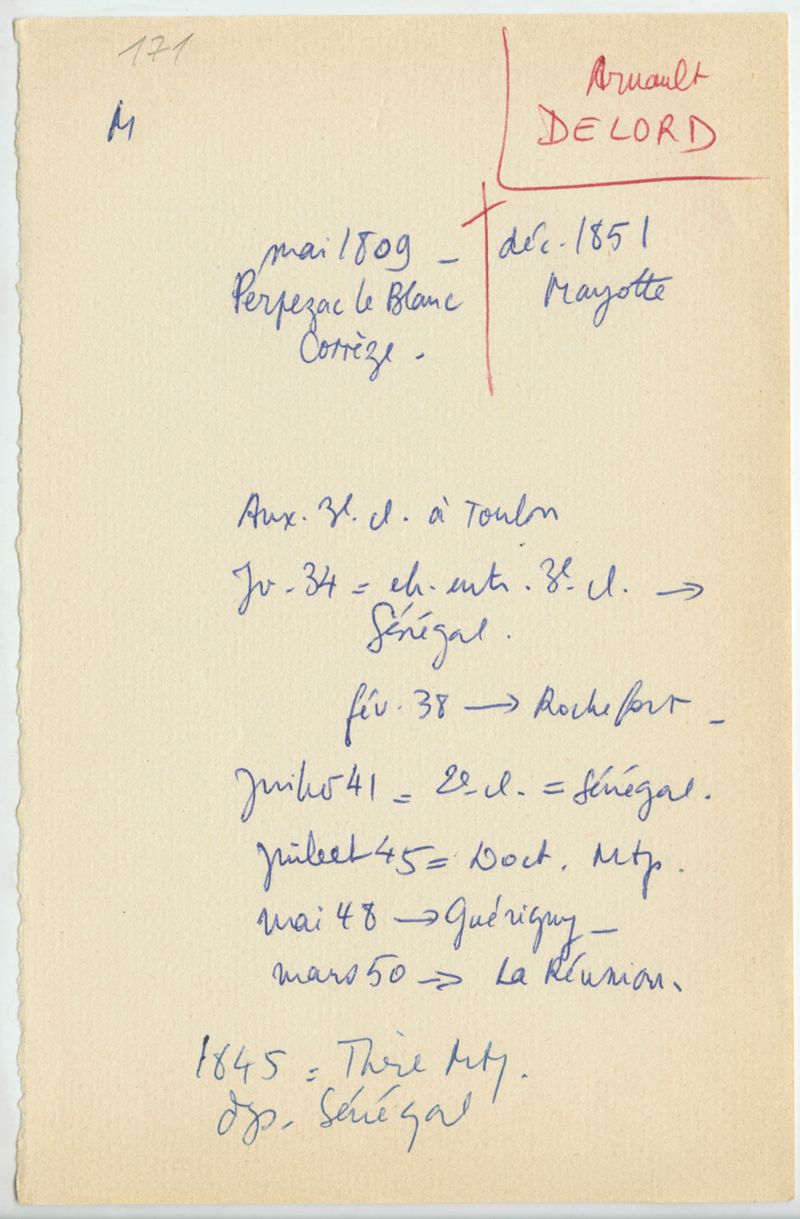 171
M
Arnault
DELORD
mai 1809 - déc. 1851
Perpezac le Blanc Mayotte
Corrèze.
Aux. 3e. cl. à Toulon
Jv. 34 = ch. entr. 3e cl. →
Sénégal.
fév. 38 → Rochefort -
41 = 2e cl. = Sénégal.
juillet 45 = Doct. Mtp.
mai 48 → Guérigny -
mars 50 → La Réunion.
1845 = Thèse Mtp.
Sénégal